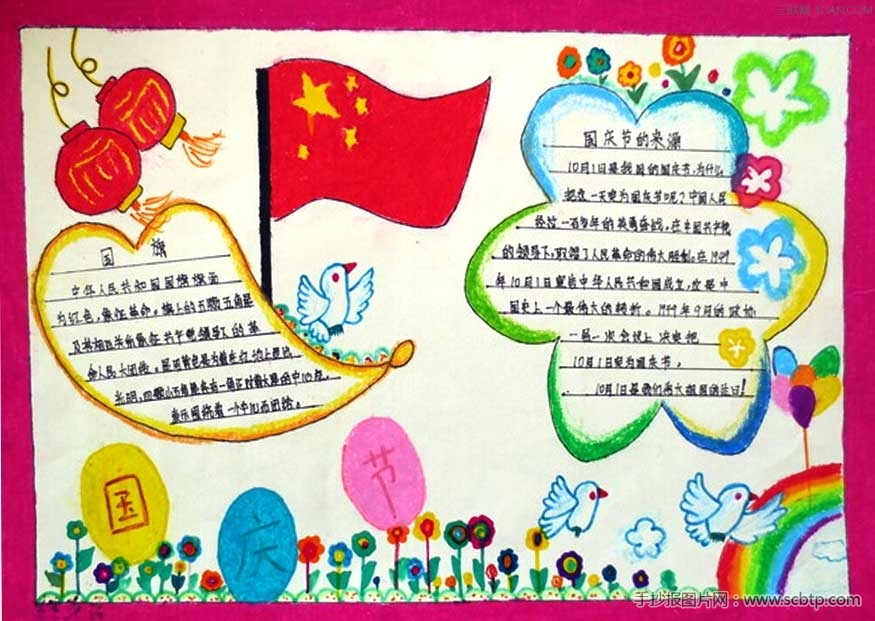 三联网 3LIAN.COM
国旗
中华人民共和国国旗旗面
为红色，象征革命。旗上的五颗五角星
及其相互关系象征在共产党领导人的革
命人民大团结。星用黄色是为着在红地上显出
光明，四颗小五角星各有一角正对着大星的中心点，
表示围绕着一个中心而团结。
国庆节的来源
10月1日是我国的国庆节，为什么
把这一天定为国庆节呢？中国人民
经过一百多年的英勇奋战，在中国共产党
的领导下，取得了人民革命的伟大胜利。在1949
年10月1日宣告中华人民共和国成立，这是中
国史上一个最伟大的转折。1949年9月的政协
一届一次会议上决定把
10月1日定为国庆节。
10月1日是我们伟大祖国的生日！
国
庆
节
手抄报图片网：www.scbtp.com